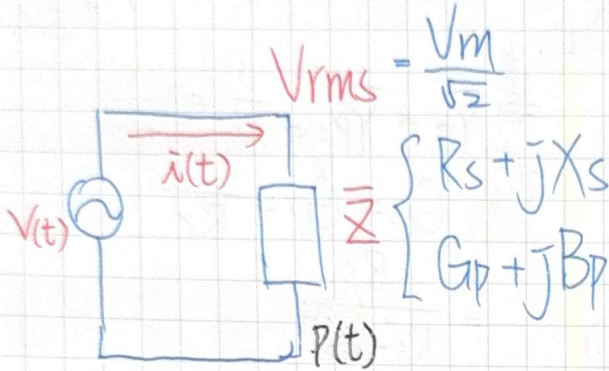 Vrms = Vm/√2
i(t)
V(t)
Z̅ { Rs + jXs
Gp + jBp
P(t)